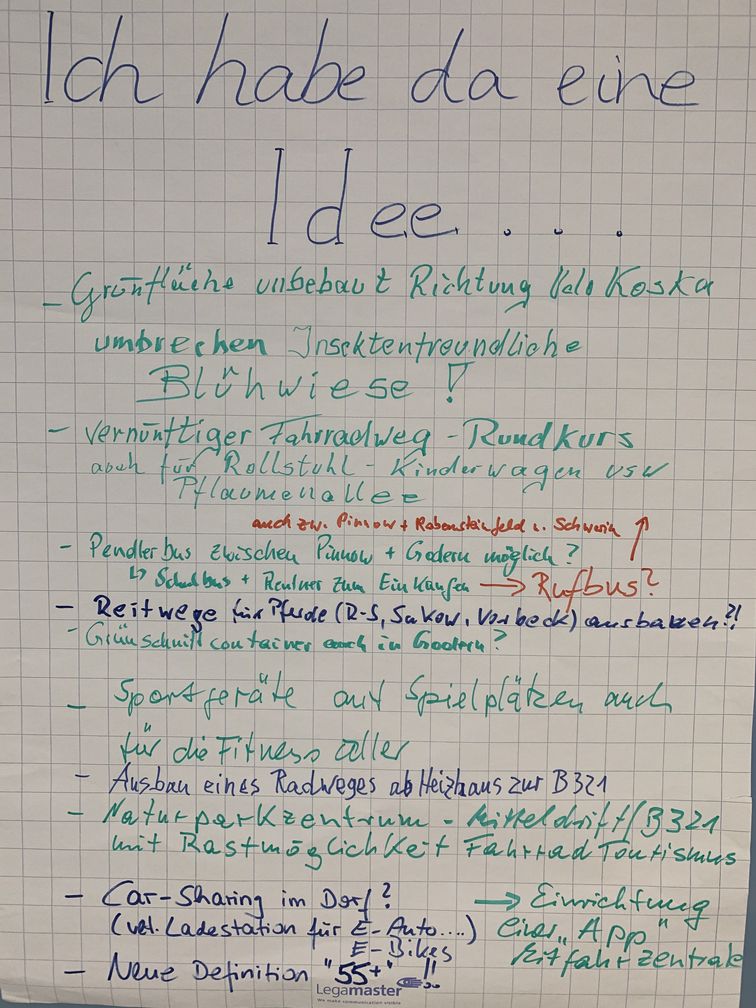 Ich habe da eine
Idee...
- Grünfläche unbebaut Richtung Koska
umbrechen Insektenfreundliche
Blühwiese!
- vernünftiger Fahrradweg - Rundkurs
auch für Rollstuhl - Kinderwagen usw
Pflaumenallee
auch zw. Pinnow + Rabensteinfeld u. Schwerin ↑
- Pendlerbus zwischen Pinnow + Godern möglich?
↳ Schulbus + Rentner zum Einkaufen → Rufbus?
- Reitwege für Pferde (R-S, Sukow, Vorbeck) ausbauen?!
- Grünschnittcontainer auch in Godern?
- Sportgeräte auf Spielplätzen auch
für die Fitness aller
- Ausbau eines Radweges ab Heizhaus zur B321
- Naturparkzentrum - Mitteldrift/B321
mit Rastmöglichkeit Fahrrad Tourismus
- Car-Sharing im Dorf? → Einrichtung
(vel. Ladestation für E-Auto....) einer „App"
E-Bikes Mitfahrzentrale
- Neue Definition "55+" !!
Legamaster
We make communication visible